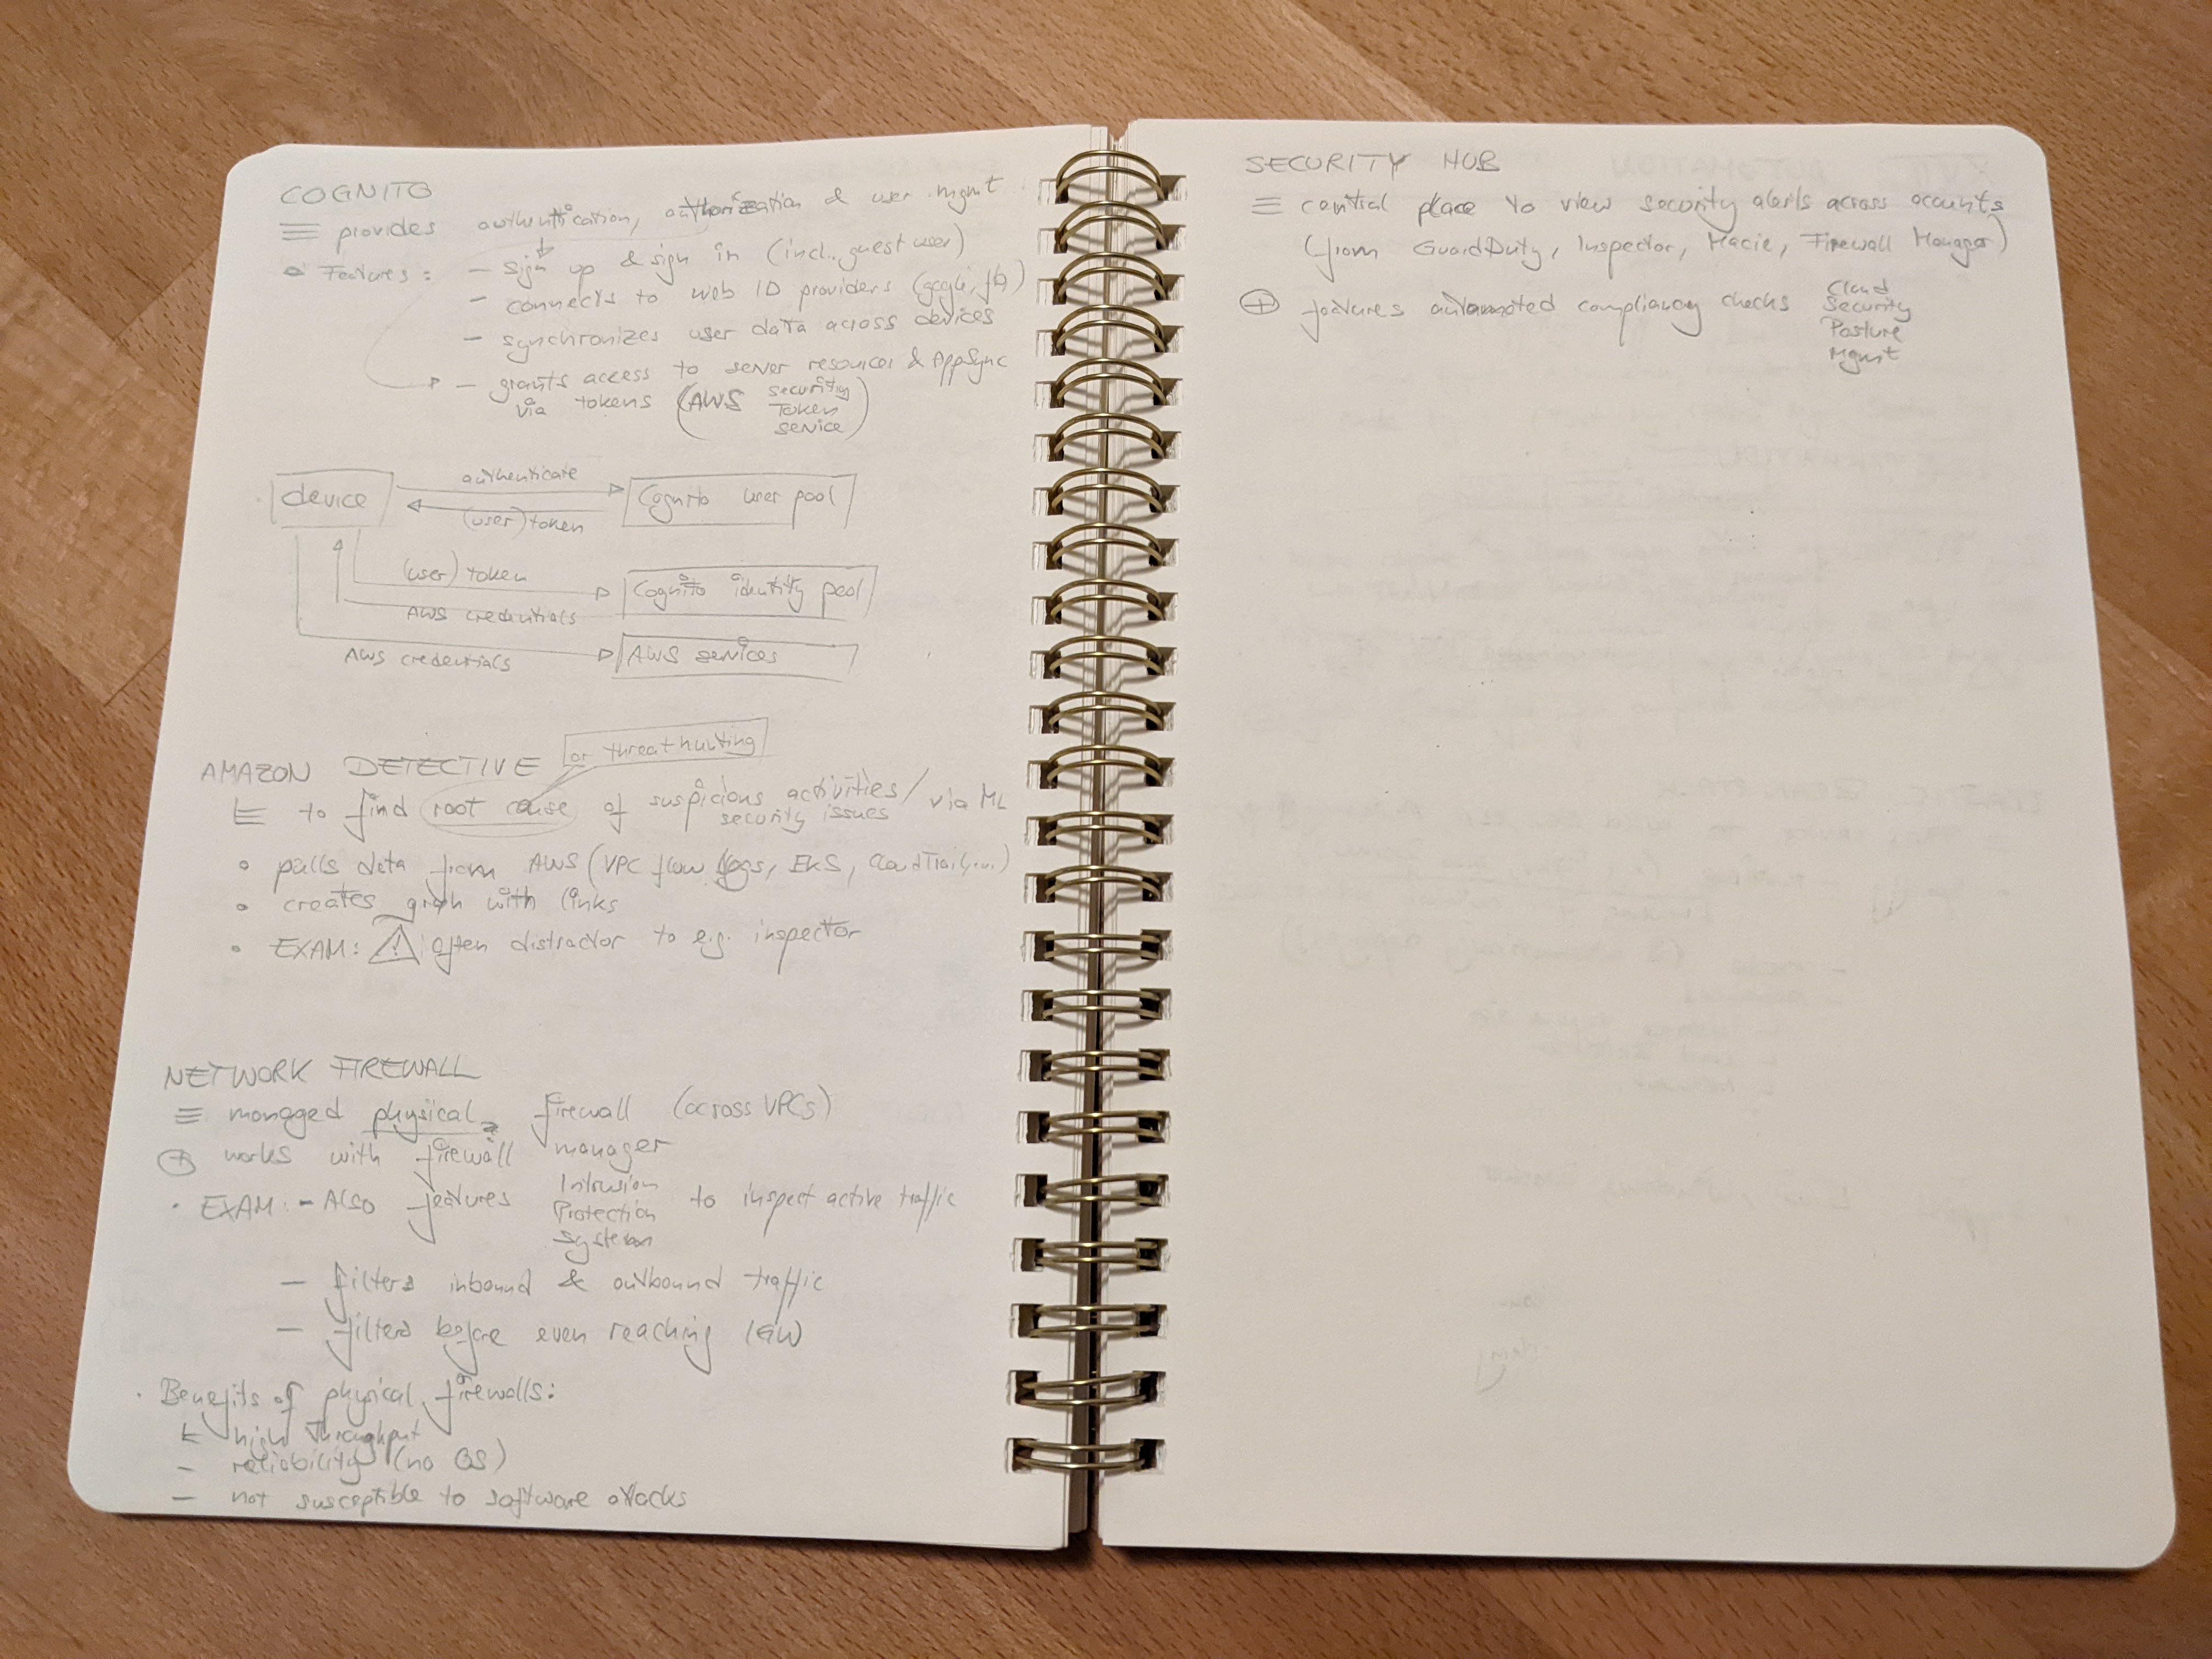 COGNITO
≡ provides authentication, authorization & user mgmt
• Features: – sign up & sign in (incl. guest user)
– connects to web ID providers (google, fb)
– synchronizes user data across devices
– grants access to server resources & AppSync
via tokens (AWS Security
Token
Service)
device
authenticate
(user) token
Cognito user pool
(user) token
AWS credentials
Cognito identity pool
AWS credentials
AWS services
or threat hunting
AMAZON DETECTIVE
≡ to find root cause of suspicious activities / via ML
security issues
• pulls data from AWS (VPC flow logs, EKS, CloudTrail, ...)
• creates graph with links
• EXAM: ⚠ often distractor to e.g. inspector
NETWORK FIREWALL
≡ managed physical firewall (across VPCs)
⊕ works with firewall manager
• EXAM: – Also features Intrusion
Protection
System
to inspect active traffic
– filters inbound & outbound traffic
– filters before even reaching IGW
• Benefits of physical firewalls:
– high throughput
– reliability (no OS)
– not susceptible to software attacks
SECURITY HUB
≡ central place to view security alerts across accounts
(from GuardDuty, Inspector, Macie, Firewall Manager)
⊕ features automated compliancy checks
Cloud
Security
Posture
Mgmt